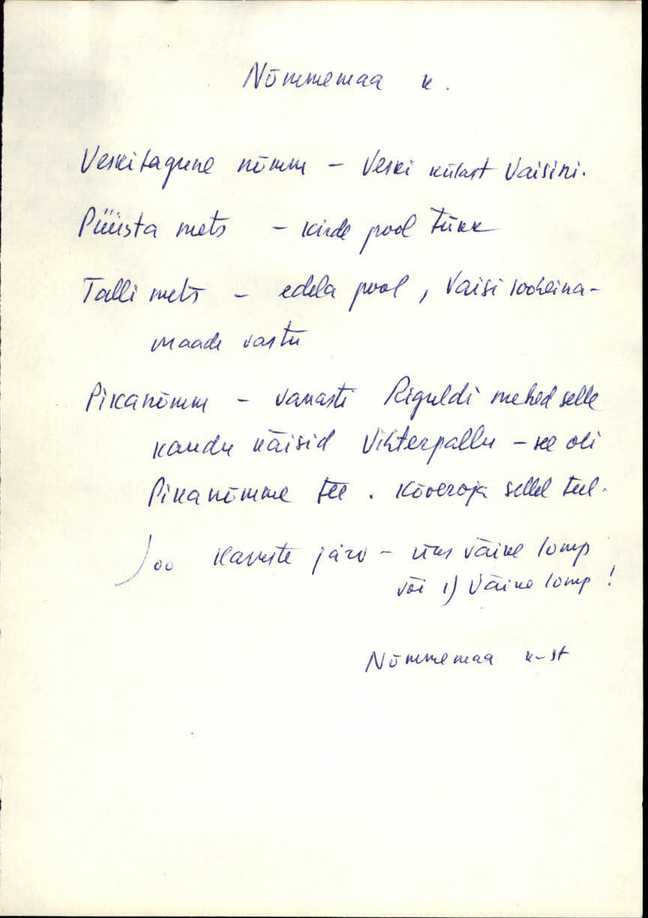 Nõmmemaa k.
Veskitagune nõmm – Veski külast Vaisini.
Püüsta mets – kirde pool tükk
Talli mets – edela pool, Vaisi sooheina-
maade vastu
Pikanõmm – vanasti Riguldi mehed selle
kaudu käisid Vihterpallu – see oli
Pikanõmme tee. Kõveroja sellel teel.
Joo Karuste järv – üks väike lomp
või 1) Väike lomp!
Nõmmemaa k-st